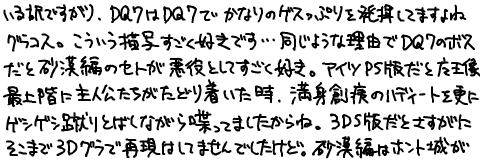 いる訳ですがり、DQ7はDQ7でかなりのゲスっぷりを発揮してますよね
グラコス。こういう描写すごく好きです…同じような理由でDQ7のボス
だと砂漠編のセトが悪役としてすごく好き。アイツPS版だと魔王像
最上階に主人公たちがたどり着いた時、満身創痍のハディートを更に
ゲシゲシ蹴りとばしながら喋ってましたからね。3DS版だとさすがに
そこまで3Dグラで再現はしてませんでしたけど。砂漠編はホント城が